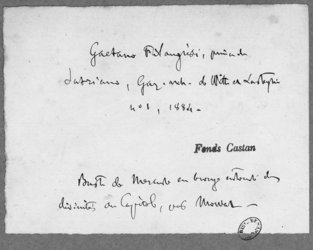 Gaetano Filangieri, prince de
Satriano, Gaz. arch. de Witte et Lasteyrie
n° 1, 1884.
Fonds Castan
Buste de Mercure en bronze entouré des
divinités du Capitole, par Mowat.